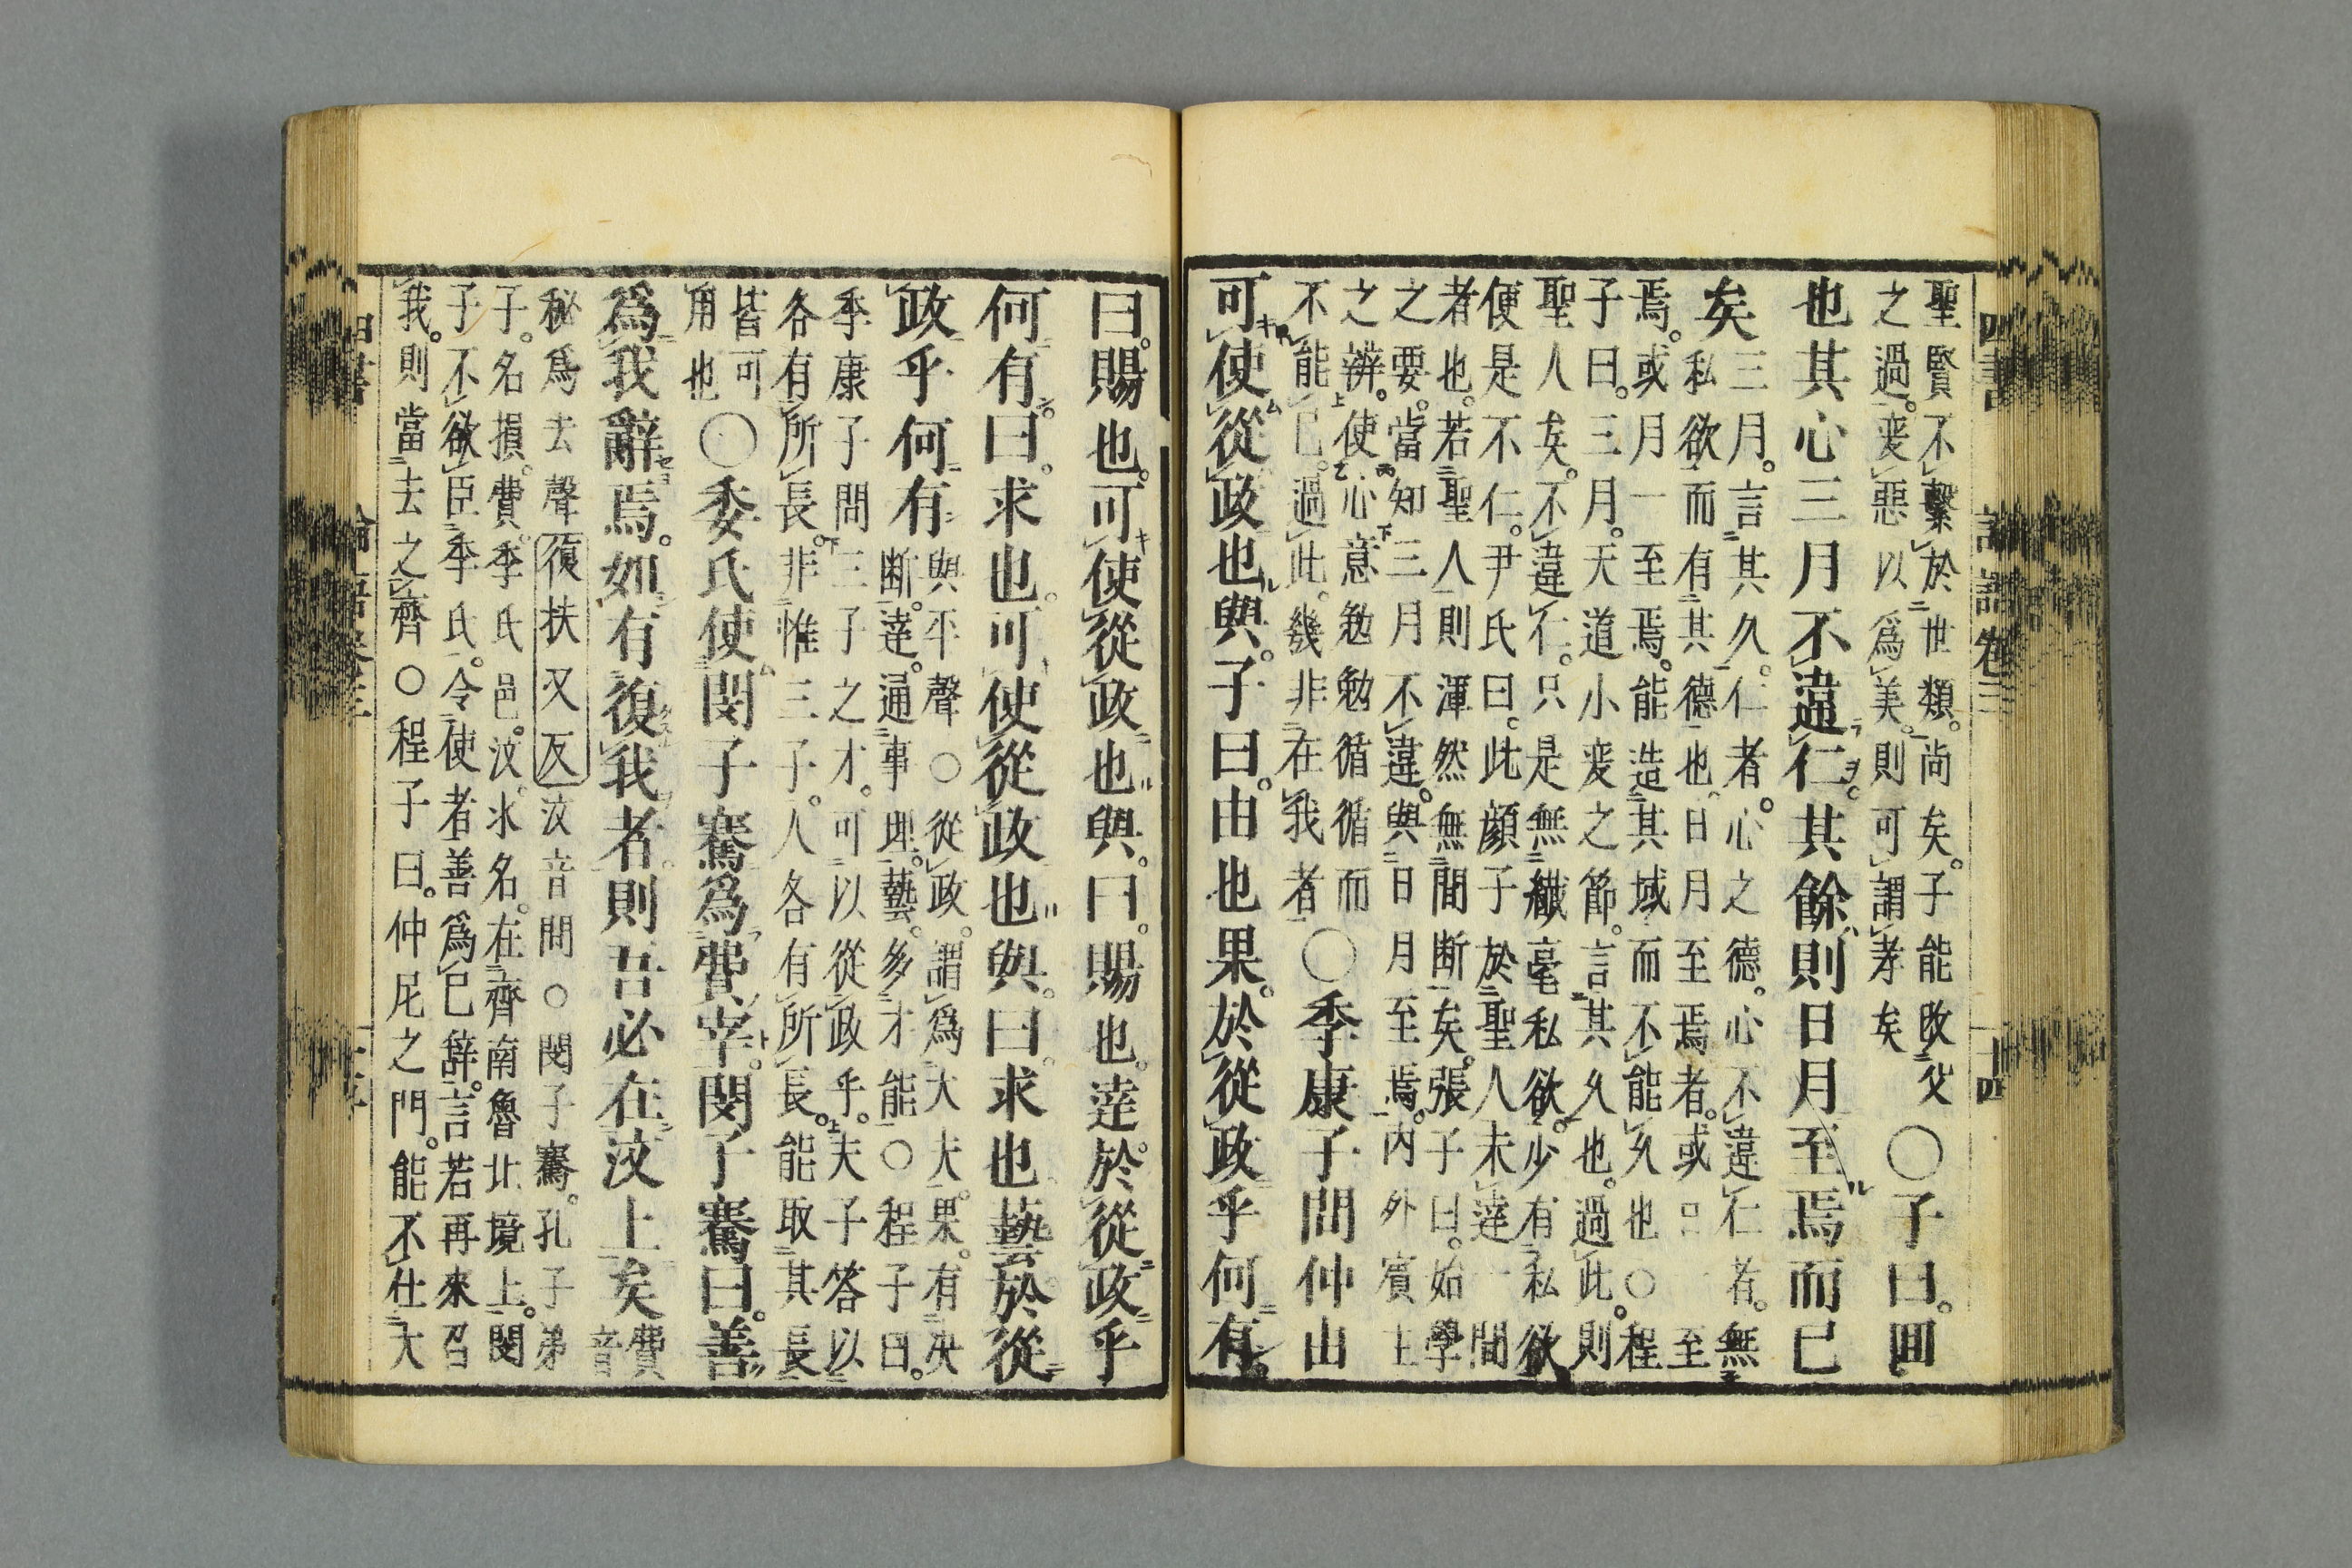 四書
論語卷三
十四
聖賢不繫於世類尚矣。子能改父
之過。変惡以爲美。則可謂孝矣
○子曰。囬
也其心三月不違仁。其餘則日月至焉而已
矣
三月。言其久。仁者。心之德。心不違仁者。無
私欲而有其德也。日月至焉者。或日一至
焉。或月一至焉。能造其域而不能久也○程
子曰。三月。天道小変之節。言其久也。過此。則
聖人矣。不違仁。只是無纎毫私欲。少有私欲
便是不仁。尹氏曰。此顔子於聖人未達一間
者也。若聖人則渾然無間断矣。張子曰。始學
之要。當知三月不違。與日月至焉。内外賓主
之辨。使心意勉勉循循而
不能已。過此。幾非在我者
○季康子問仲由
可使從政也與。子曰。由也果。於從政乎何有。
曰。賜也。可使從政也與。曰。賜也。達於從政乎
何有。曰。求也。可使從政也與。曰。求也藝於從
政乎何有
與平聲○從政。謂爲大夫。果。有决
断。達。通事理。藝。多才能○程子曰。
季康子問三子之才。可以從政乎。夫子答以
各有所長。非惟三子。人各有所長。能取其長
皆可
用也
○委氏使閔子騫爲費宰。閔子騫曰。善
爲我辭焉。如有復我者。則吾必在汶上矣
費
音
秘爲去聲復扶又反汶音問○閔子騫。孔子弟
子。名損。費。季氏邑。汶。水名。在齊南魯北境上。閔
子不欲臣季氏。令使者善爲已辞。言若再來召
我。則當去之齊○程子曰。仲尼之門。能不仕大
四書
論語卷三